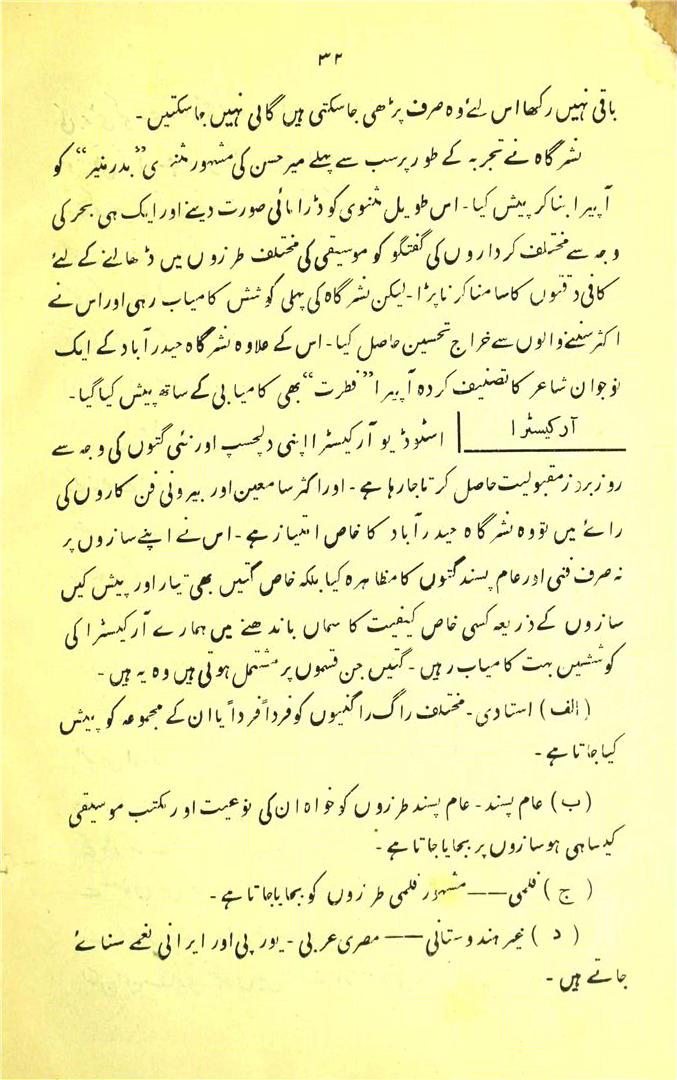 ۳۲
باقی نہیں رکھا اس لئے وہ صرف پڑھی جاسکتی ہیں گائی نہیں جاسکتیں۔
نشر گاہ نے تجربہ کے طور پر سب سے پہلے میر حسن کی مشہور مثنوی ”بدر منیر“ کو
آپیرا بنا کر پیش کیا۔ اس طویل مثنوی کو ڈرامائی صورت دینے اور ایک ہی بحر کی
وجہ سے مختلف کرداروں کی گفتگو کو موسیقی کی مختلف طرزوں میں ڈھالنے کے لئے
کافی دقتوں کا سامنا کرنا پڑا۔ لیکن نشر گاہ کی پہلی کوشش کامیاب رہی اور اس نے
اکثر سننے والوں سے خراج تحسین حاصل کیا۔ اس کے علاوہ نشر گاہ حیدرآباد کے ایک
نوجوان شاعر کا تصنیف کردہ آپیرا ”فطرت“ بھی کامیابی کے ساتھ پیش کیا گیا۔
آرکیسٹرا | اسٹوڈیو آرکیسٹرا اپنی دلچسپ اور نئی گتوں کی وجہ سے
روز بروز مقبولیت حاصل کرتا جارہا ہے۔ اور اکثر سامعین اور بیرونی فن کاروں کی
رائے میں تو وہ نشر گاہ حیدرآباد کا خاص امتیاز ہے۔ اس نے اپنے سازوں پر
نہ صرف فنی اور عام پسند گتوں کا مظاہرہ کیا بلکہ خاص گتیں بھی تیار اور پیش کیں
سازوں کے ذریعہ کسی خاص کیفیت کا سماں باندھنے میں ہمارے آرکیسٹرا کی
کوششیں بہت کامیاب رہیں۔ گتیں جن قسموں پر مشتمل ہوتی ہیں وہ یہ ہیں۔
(الف) استادی۔ مختلف راگ راگنیوں کو فرداً فرداً یا ان کے مجموعہ کو پیش
کیا جاتا ہے۔
(ب) عام پسند۔ عام پسند طرزوں کو خواہ ان کی نوعیت اور مکتب موسیقی
کیسا ہی ہو سازوں پر بجایا جاتا ہے۔
(ج) فلمی —— مشہور فلمی طرزوں کو بجایا جاتا ہے۔
(د) غیر ہندوستانی —— مصری عربی۔ یورپی اور ایرانی نغمے سنائے
جاتے ہیں۔